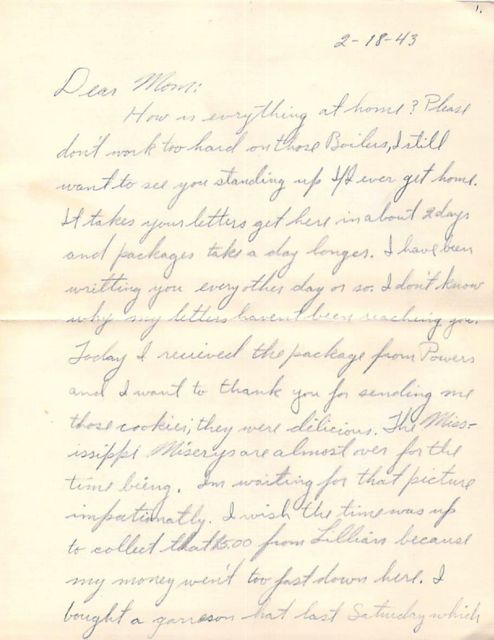 1.
2-18-43
Dear Mom:
How is evrything at home? Please
don't work too hard on those Boilers, I still
want to see you standing up If I ever get home.
It takes your letters get here in about 2 days
and packages take a day longer. I have been
writting you every other day or so. I don't know
why my letters haven't been reaching you.
Today I recieved the package from Powers
and I want to thank you for sending me
those cookies, they were delicious. The Miss-
issippi Miserys are almost over for the
time being. Im waiting for that picture
impatiently. I wish the time was up
to collect that $5.00 from Lillian because
my money went too fast down here. I
bought a garrason hat last Saturday which